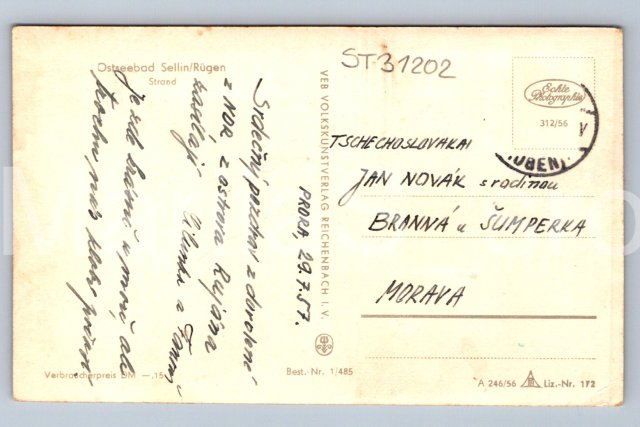 ST-31202
Ostseebad Sellin/Rügen
Strand
Echte
Photographie
312/56
TSCHECHOSLOVAKAI
JAN NOVÁK s rodinou
BRANNÁ u ŠUMPERKA
MORAVA
PRORA, 29.7.57.
Srdečný pozdrav z dovolené
z NDR z ostrova Rujána
zasílají
Je zde krásně u moře, ale
trochu nás zlobí počasí
VEB VOLKSKUNSTVERLAG REICHENBACH I. V.
Verbraucherpreis DM —,15
Best.-Nr. 1/485
A 246/56
Liz.-Nr. 172